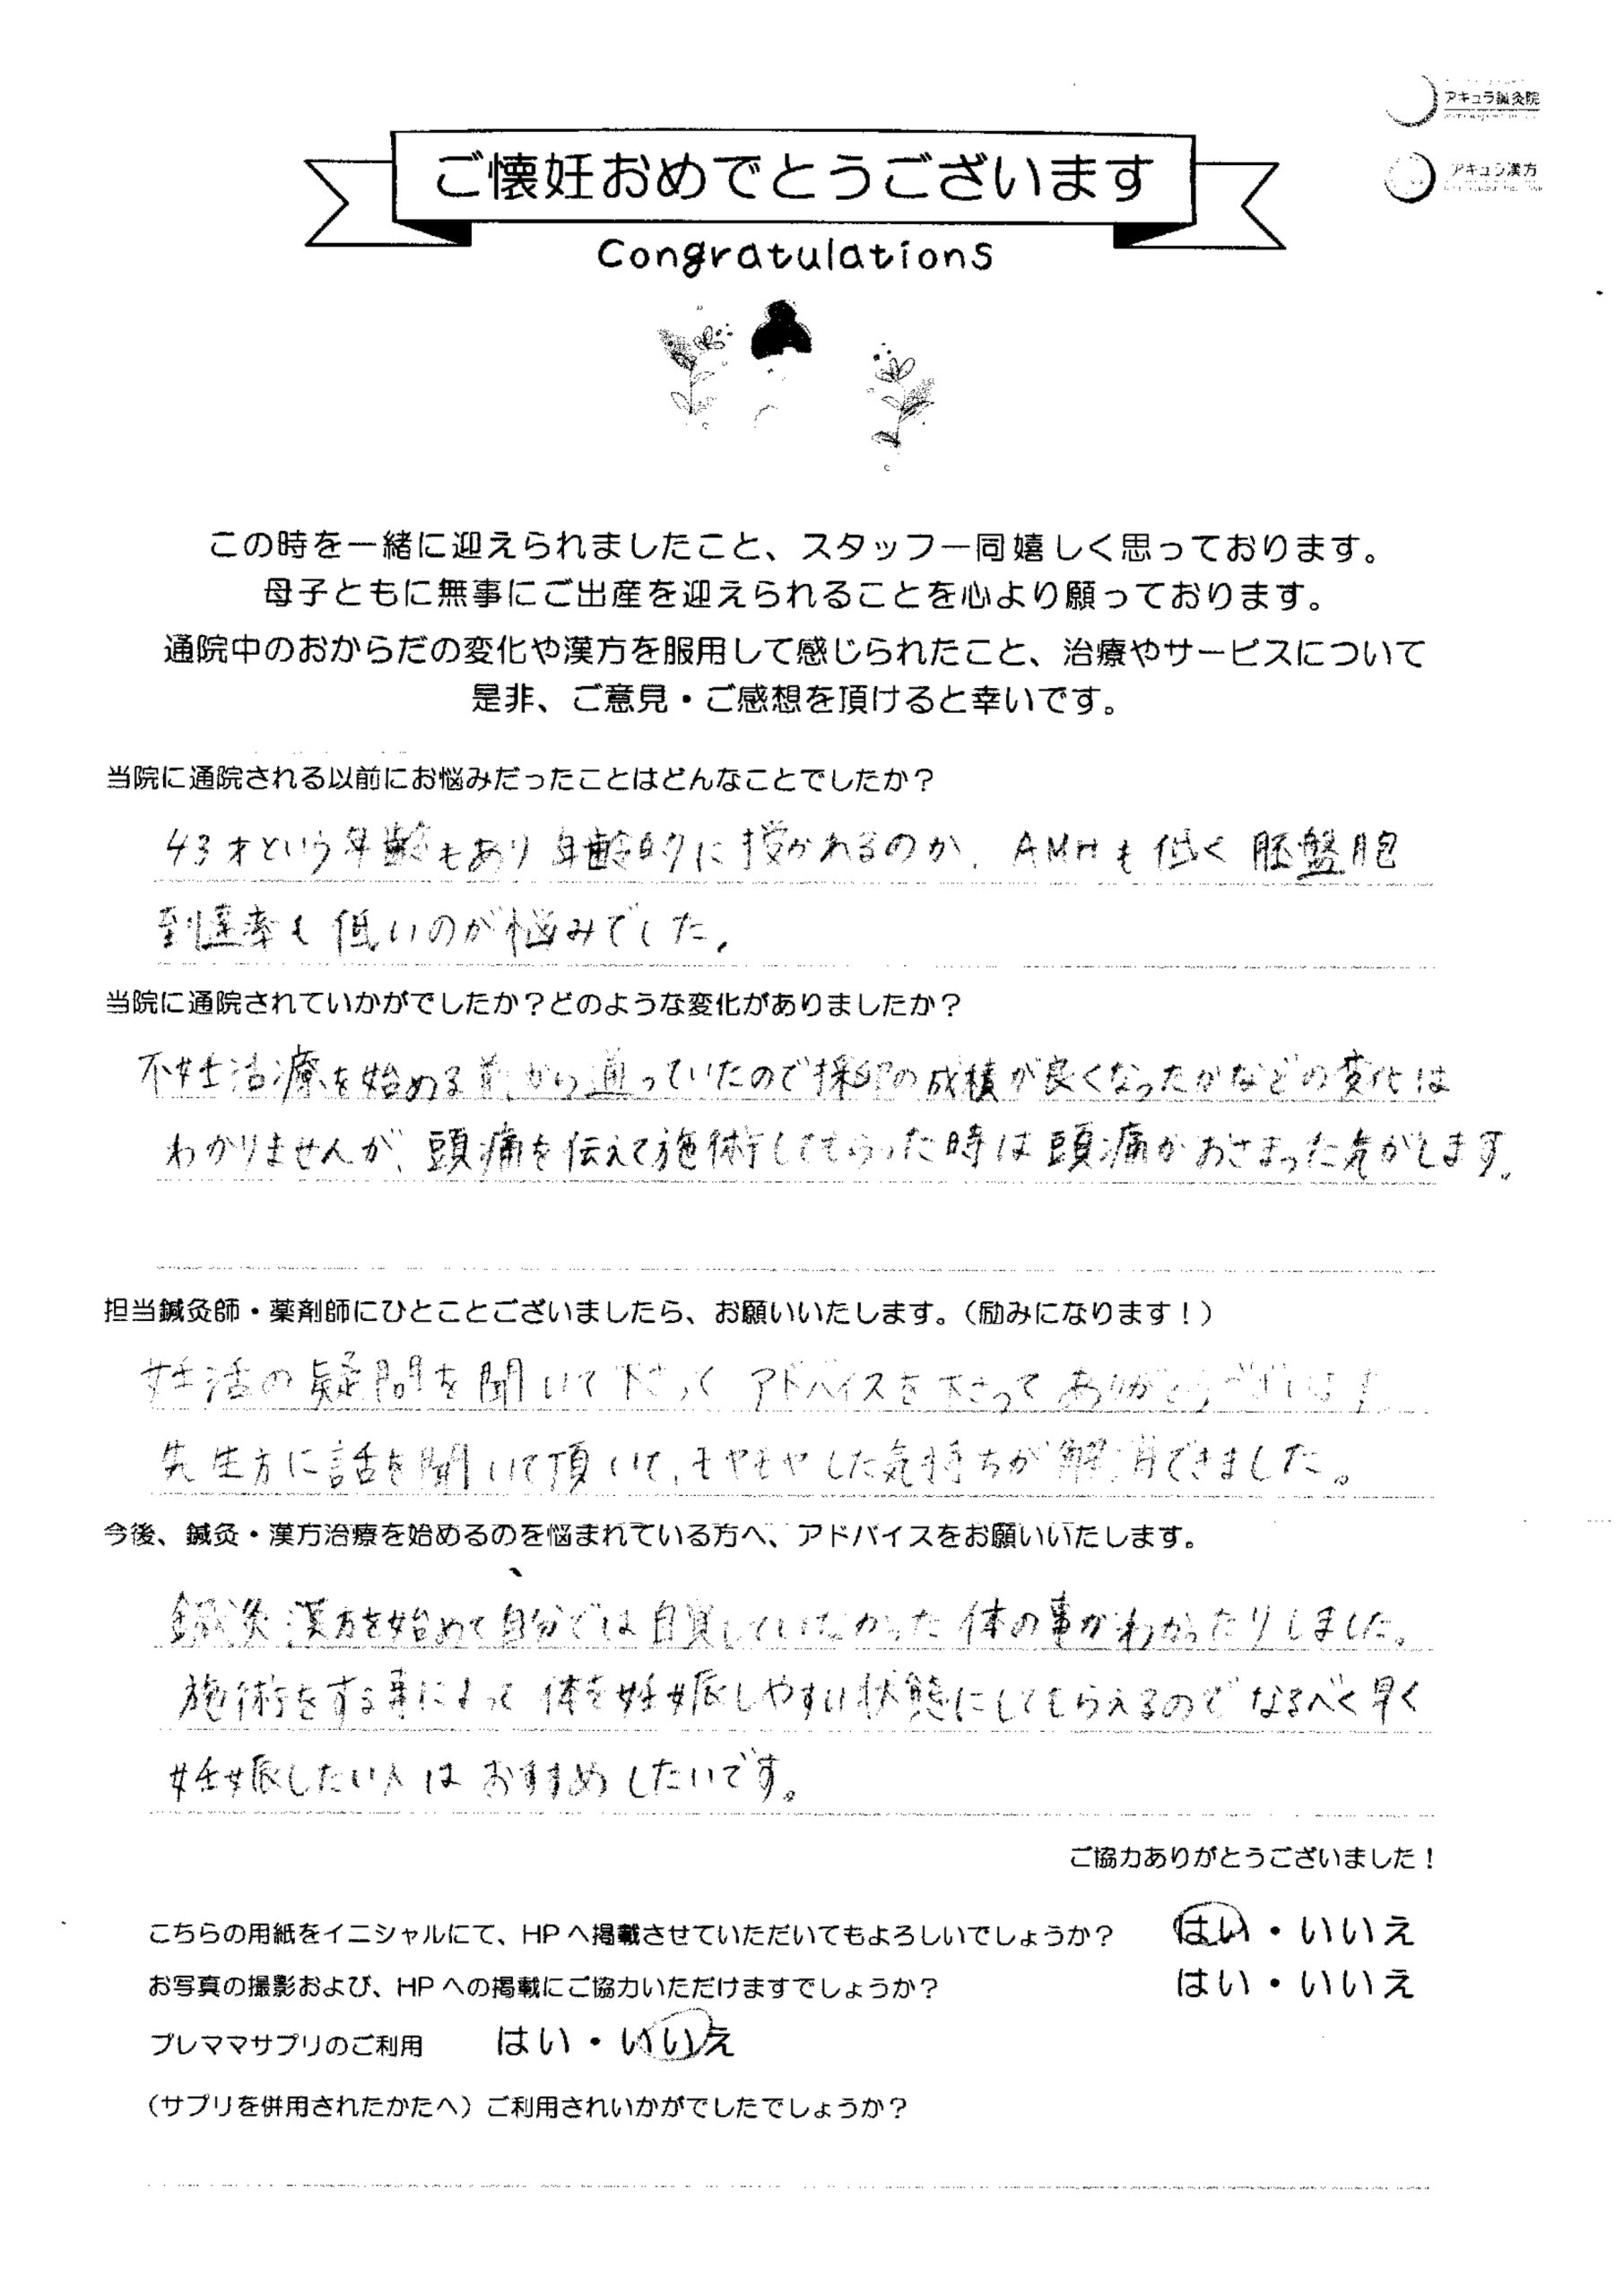 アキュラ鍼灸院
アキュラ漢方
ご懐妊おめでとうございます
Congratulations
この時を一緒に迎えられましたこと、スタッフ一同嬉しく思っております。
母子ともに無事にご出産を迎えられることを心より願っております。
通院中のおからだの変化や漢方を服用して感じられたこと、治療やサービスについて
是非、ご意見・ご感想を頂けると幸いです。
当院に通院される以前にお悩みだったことはどんなことでしたか？
43才という年齢もあり年齢的に授かれるのか、AMHも低く胚盤胞
到達率も低いのが悩みでした。
当院に通院されていかがでしたか？どのような変化がありましたか？
不妊治療を始める前から通っていたので採卵の成績が良くなったかなどの変化は
わかりませんが、頭痛を伝えて施術してもらった時は頭痛がおさまった気がします。
担当鍼灸師・薬剤師にひとことございましたら、お願いいたします。（励みになります！）
妊活の疑問を聞いて下さって アドバイスを下さって ありがとうございます！
先生方に話を聞いて頂いて、モヤモヤした気持ちが解消できました。
今後、鍼灸・漢方治療を始めるのを悩まれている方へ、アドバイスをお願いいたします。
鍼灸、漢方を始めて自分では自覚していなかった体の事がわかったりしました。
施術をする事によって 体を妊娠しやすい状態にしてもらえるので なるべく早く
妊娠したい人は おすすめしたいです。
ご協力ありがとうございました！
こちらの用紙をイニシャルにて、HPへ掲載させていただいてもよろしいでしょうか？ はい・いいえ
お写真の撮影および、HPへの掲載にご協力いただけますでしょうか？ はい・いいえ
プレママサプリのご利用 はい・いいえ
（サプリを併用されたかたへ）ご利用されいかがでしたでしょうか？